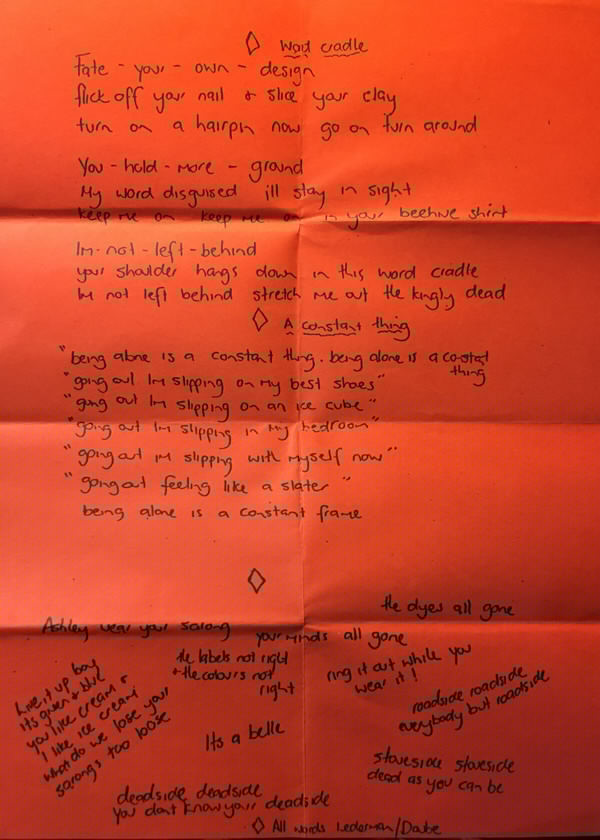 Word cradle
Fate - your - own - design
flick off your nail & slice your clay
turn on a hairpin now go on turn around
You - hold - more - ground
My word disguised ill stay in sight
keep me on keep me on in your beehive shirt
Im - not - left - behind
your shoulder hangs down in this word cradle
Im not left behind stretch me out the kingly dead
A constant thing
"being alone is a constant thing. being alone is a constant
thing
"going out Im slipping on my best shoes"
"going out Im slipping on an ice cube"
"going out Im slipping in my bedroom"
"going out im slipping with myself now"
"going out feeling like a slater"
being alone is a constant frame
the dyes all gone
Ashley wear your sarong
your minds all gone
the labels not right
& the colours not
right
ring it out while you
wear it!
live it up boy
its green & blue
you like cream &
I like ice cream
what do we lose your
sarongs too loose
roadside roadside
everybody but roadside
Its a belle
staveside staveside
dead as you can be
deadside deadside
you dont know your deadside
All words Lederman/